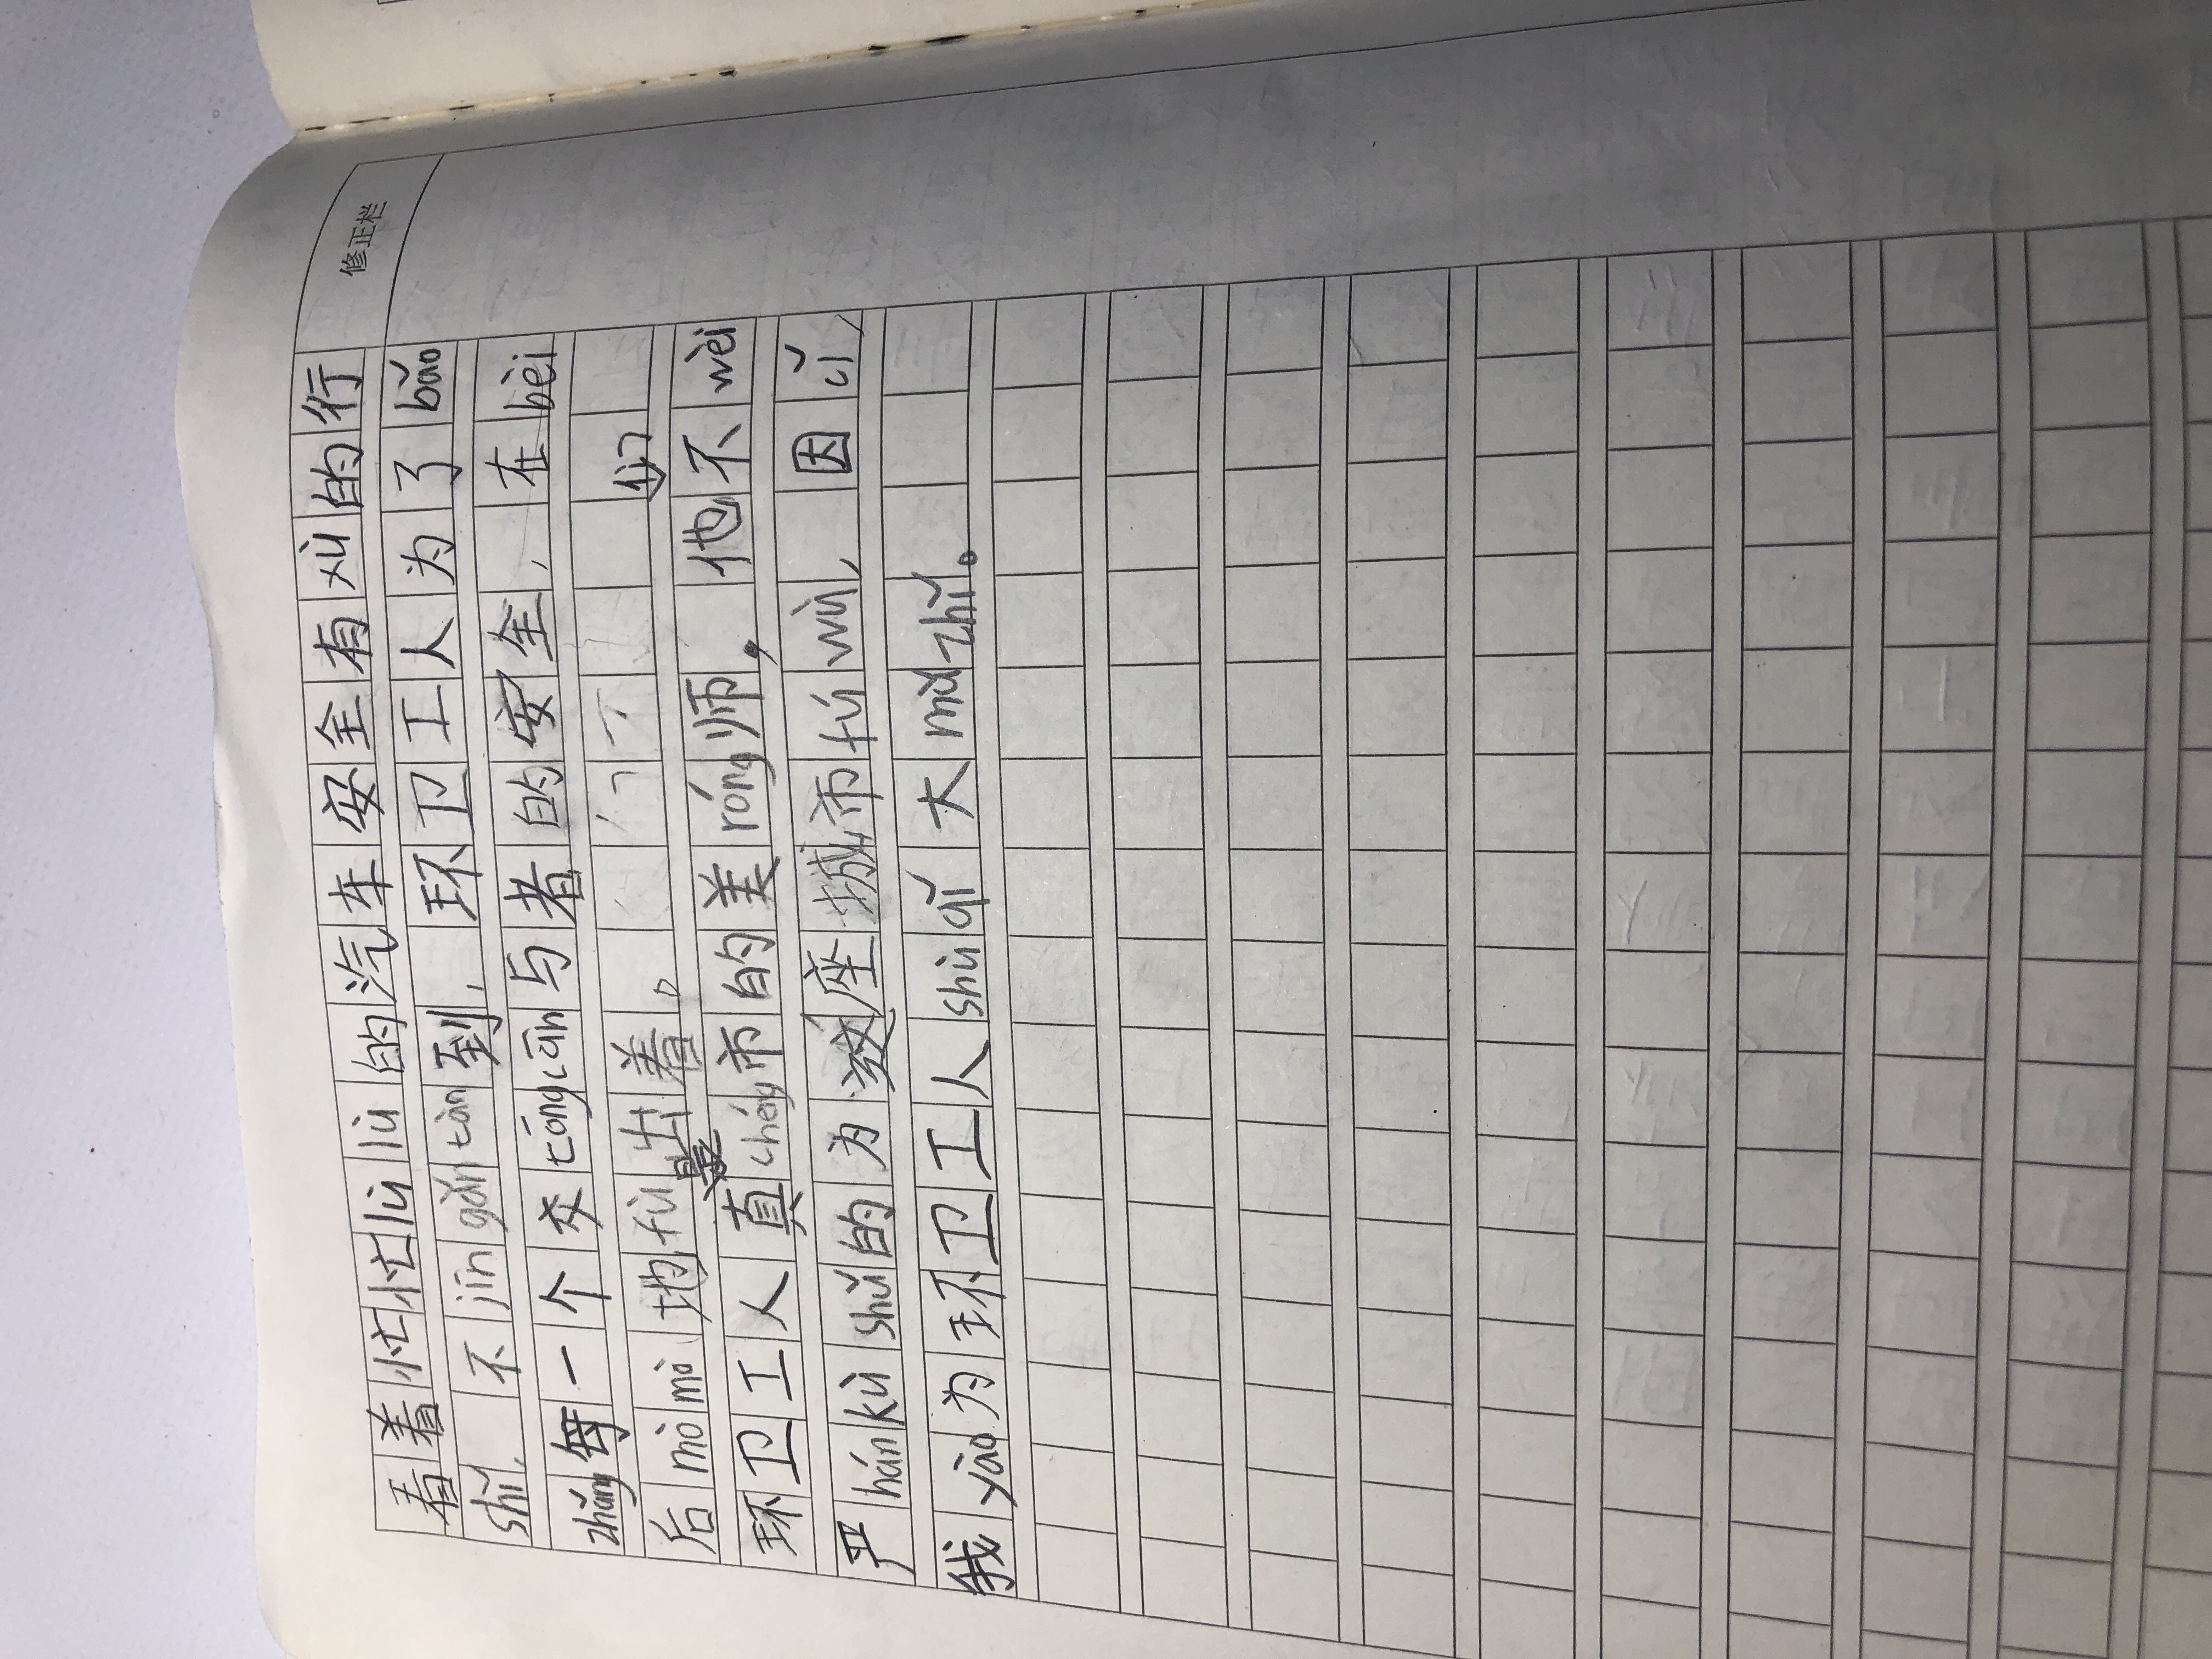 修正栏
看着忙忙lù lù的汽车安全有刈的行
shǐ，不jīn gǎn tàn到，环卫工人为了bǎo
zhàng每一个交tōng cān与者的安全，在bèi
后mò mò地fù出着。
环卫工人真是chéng市的美róng师，他们不wèi
严hán kù shǔ的为这座城市fú wù，因cǐ，
我yào为环卫工人shù qǐ大mǔ zhǐ。